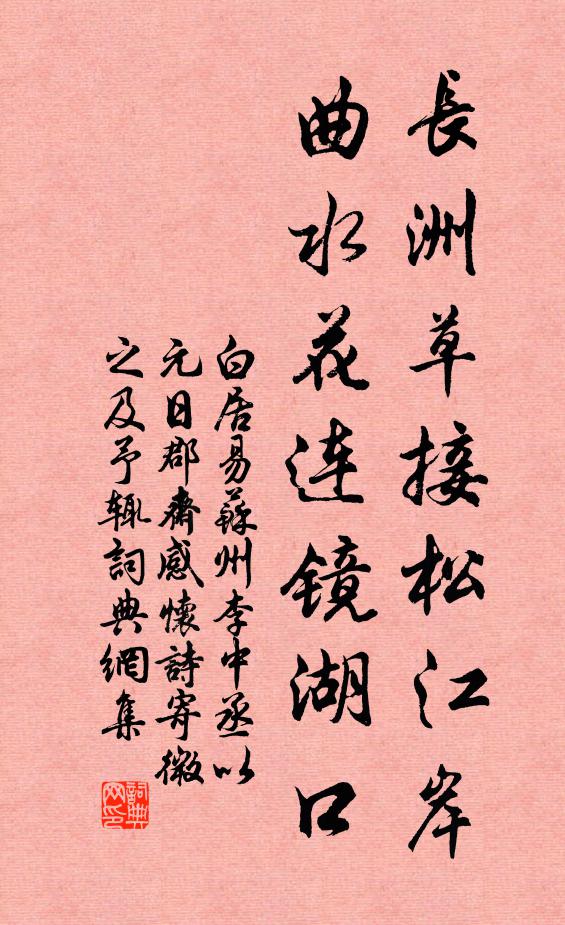 長洲草接松江岸
曲水花连镜湖口
白居易蘇州李中丞以
元日郡齋感懷詩寄微
之及予辄詞典網集
詞典
网印